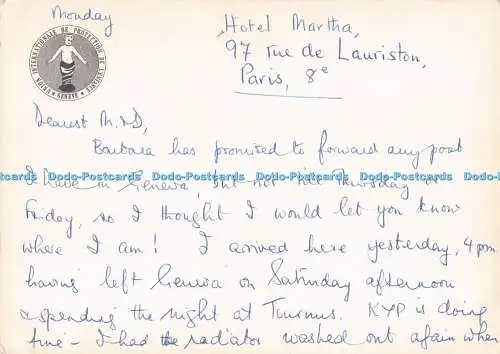 Monday
UNION INTERNATIONALE DE PROTECTION DE L'ENFANCE
GENÈVE
Hotel Martha,
97 rue de Lauriston,
Paris, 8e
Dearest M. & D,
Barbara has promised to forward any post
I have in Geneva, but not till Thursday or
Dodo-Postcards Dodo-Postcards Dodo-Postcards Dodo-Postcards
Friday, so I thought I would let you know
where I am! I arrived here yesterday, 4pm
having left Geneva on Saturday afternoon
& spending the night at Tournus. KYP is doing
fine - I had the radiator washed out again when